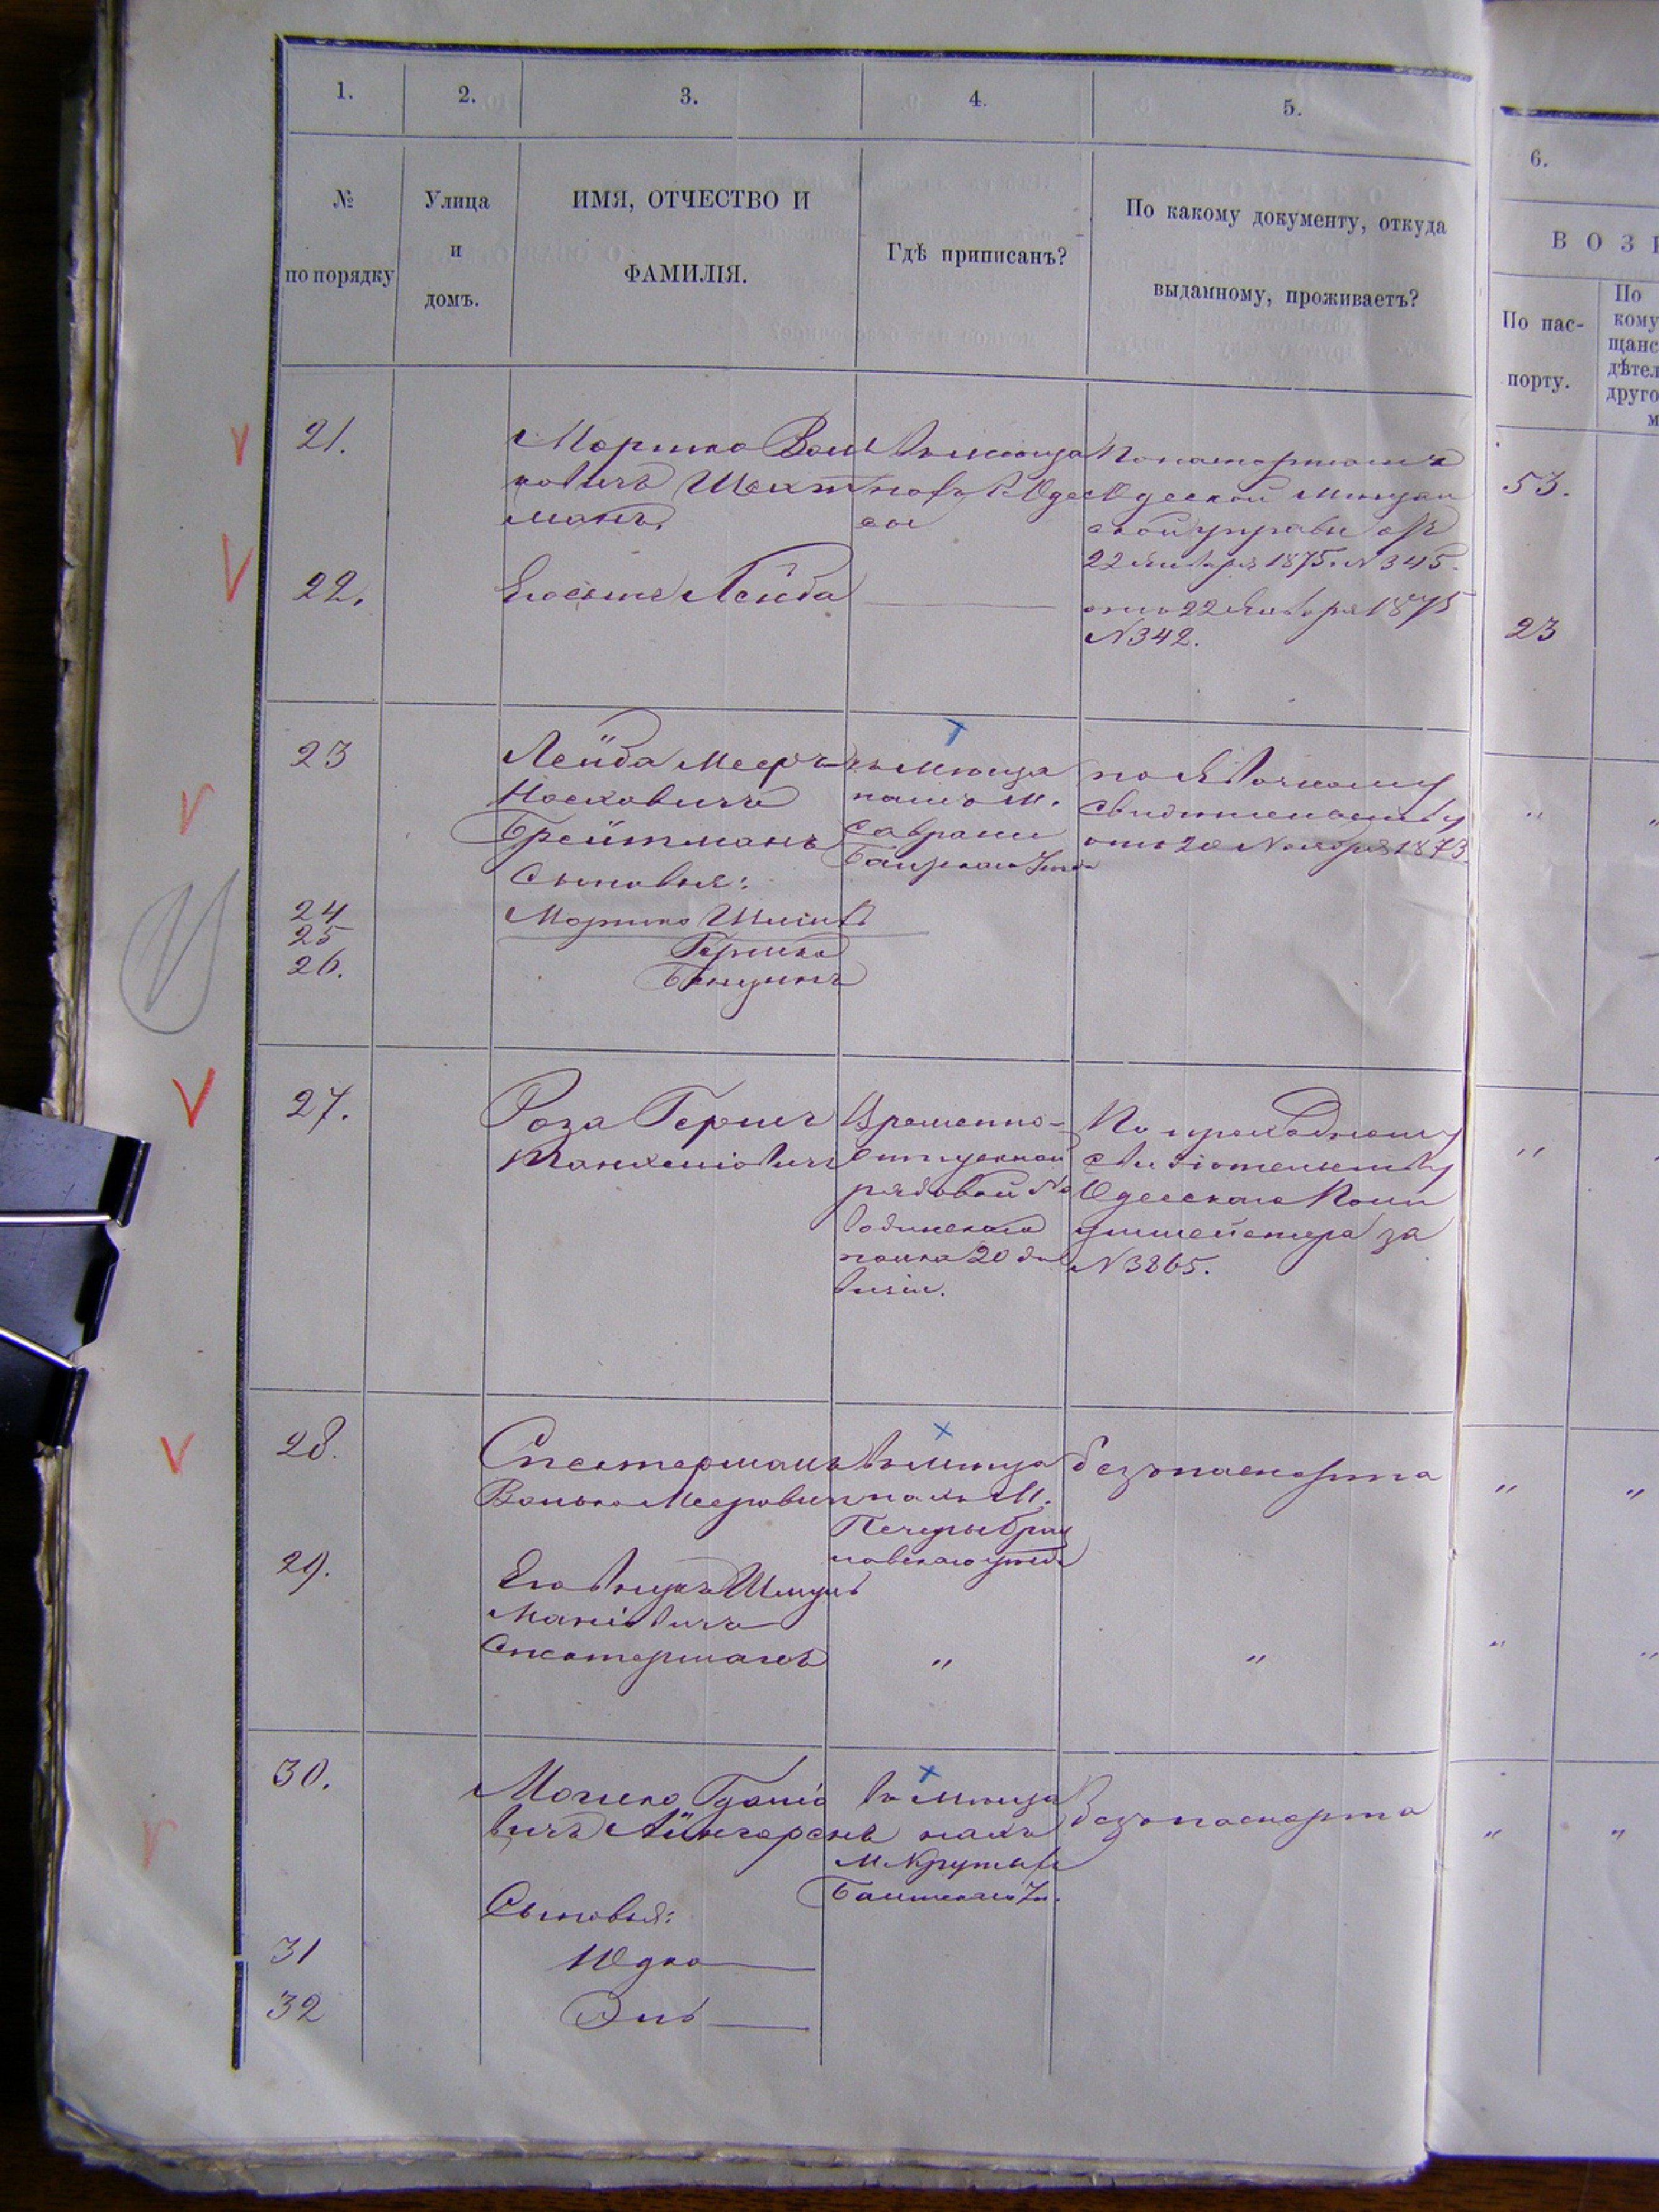 1. 2. 3. 4. 5.
6.
№
по порядку
Улица
и
домъ.
ИМЯ, ОТЧЕСТВО И
ФАМИЛІЯ.
Гдѣ приписанъ?
По какому документу, откуда
выданному, проживаетъ?
ВОЗР
По пас-
порту.
По
кому
щанс
дѣтел
друго
м
21.
Мошко Вольковичъ
Шехт
манъ.
въ мѣща
нахъ г. Одес
сы
По паспорту изъ
Одесской мѣщан
ской управы отъ
22 Января 1875. № 345.
53.
22.
Его сынъ Лейба
отъ 22 Января 1875
№ 342.
23
23
Лейба Мееръ
Носковичъ
Брейтманъ
въ мѣща
нахъ м.
Саврани
Балтскаго Уѣзда
по явочному
свидѣтельству
отъ 20 Ноября 1873
"
Сыновья:
24
Мошко
25
Гершко
26.
27.
Роза Гершъ
Временно-
отпускной
рядовой
полка 20 ди
визіи.
По проходному
свидѣтельству
Одесскаго Поли
цмейстера за
№ 3865.
"
28.
Спектерманъ
Волько Мееровичъ
въ мѣща
нахъ м.
Печеры Брац
лавскаго уѣзда
безъ паспорта
" "
29.
Его внукъ Шмуль
Маніовичъ
Спектерманъ
" "
" "
30.
Мошко
вичъ
въ мѣща
нахъ
м. Крутыхъ
Балтскаго Уѣ.
Безъ паспорта
" "
Сыновья:
31
Юдко
32
Эль